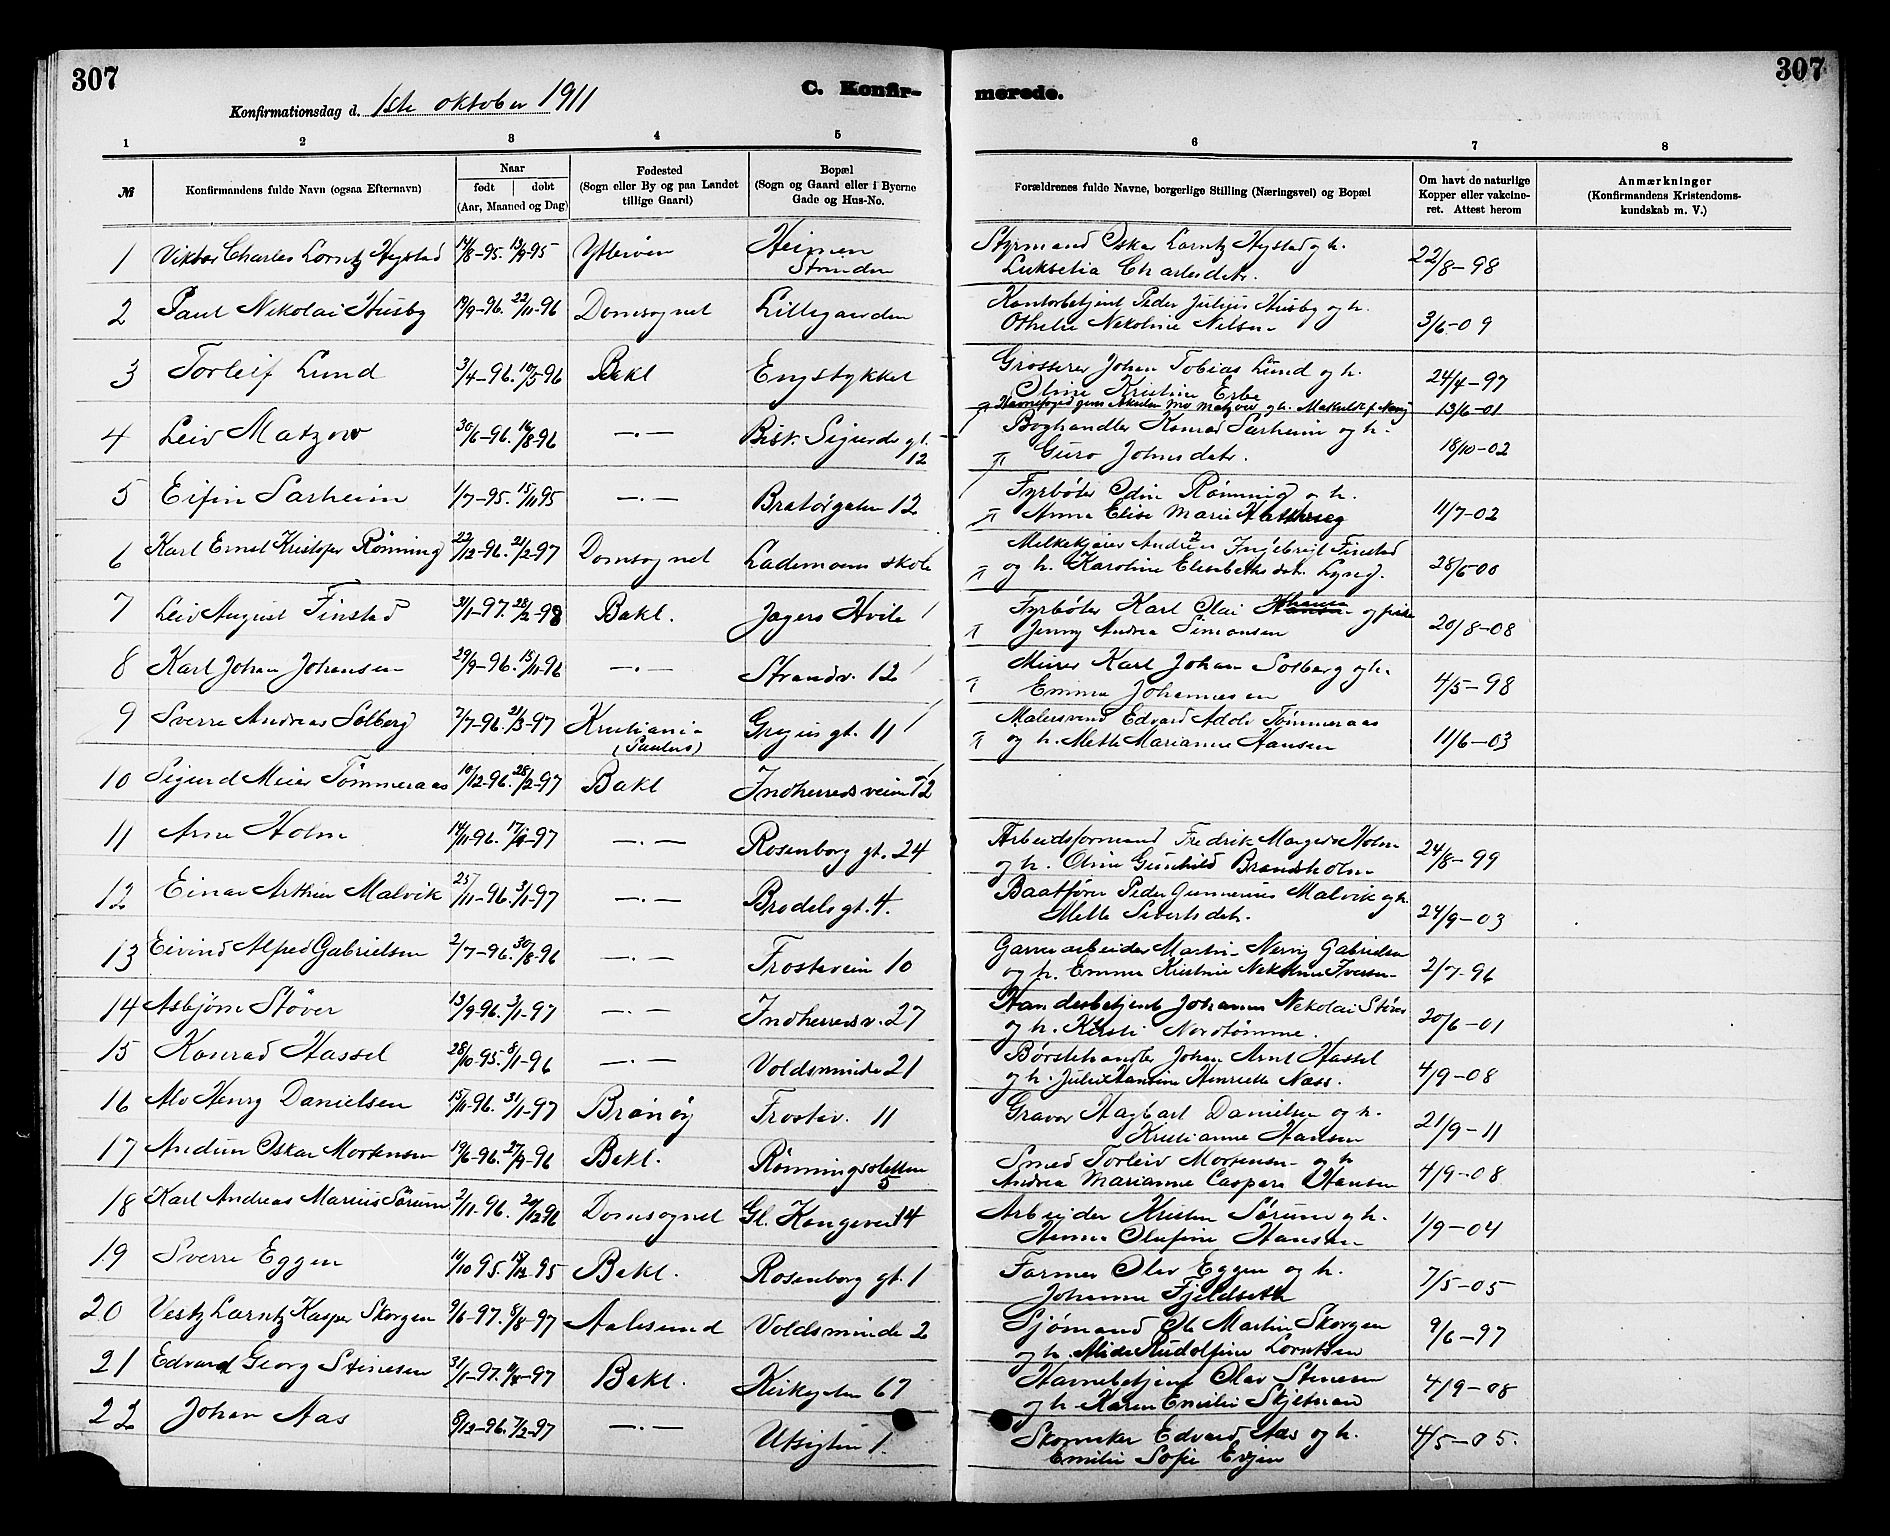 307
Konfirmationsdag d. 1ste oktober 1911
C. Konfir-
merede.
307
1 2 3 4 5 6 7 8
№
Konfirmandens fulde Navn (ogsaa Efternavn)
Naar
født | døbt
(Aar, Maaned og Dag)
Fødested
(Sogn eller By og paa Landet
tillige Gaard)
Bopæl
(Sogn og Gaard eller i Byerne
Gade og Hus-No.
Forældrenes fulde Navne, borgerlige Stilling (Næringsvei) og Bopæl
Om havt de naturlige
Kopper eller vakcine-
ret. Attest herom
Anmærkninger
(Konfirmandens Kristendoms-
kundskab m. V.)
1 Viktor Charles Lorntz Hegstad 14/8-95. 13/9-95 Ytterøen Heimen
Strinden
Styrmand Oskar Lorntz Hegstad og h.
Charlesdatr. 22/8-98
2 Paul Nikolai Husby 19/9-96. 22/11-96 Domsognet Lillegaarden
Kontorbetjent Peder Julius Husby og h.
Othelie Nekoline Nilsen 3/6-09
3 Torleif Lund 3/4-96. 10/5-96 Bakl Engstykket
Grosserer Johan Tobias Lund og h.
Oline Kristine Erbe 24/4-97
Matzow og h. 13/6-01
4 Leiv Matzow 30/6-96. 16/8-96 —.— Bisk. Sigurds gt.
12
Boghandler Konrad Sarheim og h.
Guro Johnsdatr. 18/10-02
5 Eifin Sarheim 1/7-95. 15/11 95 —.— Bratørgaten 12
Fyrbøter Odin Rønning og h.
Anna Elise Marie 11/7-02
6 Karl Ernst Kristofer Rønning 22/12-96. 21/2-97 Domsognet Lademoens skole
Melkekjører Andreas Ingebrigt Finstad
og h. Karoline Elisabethsdatr. Lyng. 28/6-00
7 Leiv August Finstad 31/1-97. 28/2-98 Bakl. Jægers Hvile
Fyrbøter Karl Olai og pike
Jenny Andrea Simonsen 20/8-08
8 Karl Johan Johansen 29/9-96. 15/11-96 —.— Strandv. 12
Murer Karl Johan Solberg og h.
Emma Johannesen 4/5-98
9 Sverre Andreas Solberg 7/7-96. 21/3-97 Kristiania
(Paulus) Gregus gt. 11
Malersvend Edvard Adolv Tømmeraas
og h. Mette Marianne Hansen 11/6-03
10 Sigurd Meier Tømmeraas 10/12-96. 28/2-97 Bakl Indherredsveien 72
11 Arne Holm 14/11-96. 17/1-97 —.— Rosenborg gt. 24
Arbeidsformand Fredrik Holm
og h. Oline Gunhild Brandsholm 24/8-99
12 Einar Arthur Malvik 25/11-96. 3/1-97 —.— Brodels gt. 4.
Baatfører Peder Gunnerius Malvik og h.
Mette Sivertsdatr. 24/9-03
13 Eivind Alfred Gabrielsen 2/7-96. 30/8-96 —.— Frostaveien 10
Garverarbeider Martin Gabrielsen
og h. Emma Kristine Iversen 2/7-96
14 Asbjørn Støver 13/9-96. 3/1-97 —.— Indherredsv. 27
Handelsbetjent Johannes Nikolai Støver
og h. Kirsti Nordtømme. 20/6-01
15 Konrad Hassel 28/10 95. 8/1-96 —.— Voldsminde 21
Børstehandler Johan Arnt Hassel
og h. Julie Hansine Henriette Næss. 4/9-08
16 Alv Henry Danielsen 15/11-96. 31/1-97 Brønøy Frostav. 11
Gravør Hagbart Danielsen og h.
Kristianne Hansen 21/9-11
17 Audun Oskar Mortensen 19/6-96. 27/9-96 Bakl. Rønningsletten
5
Smed Torleiv Mortensen og h
Andrea Marianne Caspara Hansen 4/9-08
18 Karl Andreas Marius Sørum 2/11-96. 20/12 96 Domsognet Gl. Kongevei 14
Arbeider Kristen Sørum og h.
Hanna Olufine Hansen 1/9-04
19 Sverre Eggen 10/10 95. 15/12-95 Bakl. Rosenborg gt. 1
Farmer Olav Eggen og h.
Johanna Fjeldseth 7/5-05
20 Lorntz Kasper Skorgen 9/6-97. 8/8-97 Aalesund Voldsminde 2
Sjømand Ole Martin Skorgen
og h. Rudolfine Lorntsen 9/6-97
21 Edvard Georg Stinesen 31/1-97. 4-97 Bakl. Kirkegaten 67
Havnebetjent Olav Stinesen
og h. Karen Emilie Skjetnan 4/9-08
22 Johan Aas 8/12-96. 7/2-97 —.— Utsigten 1.
Skomaker Edvard Aas og h.
Emilie Sofie Evjen 4/5-05.